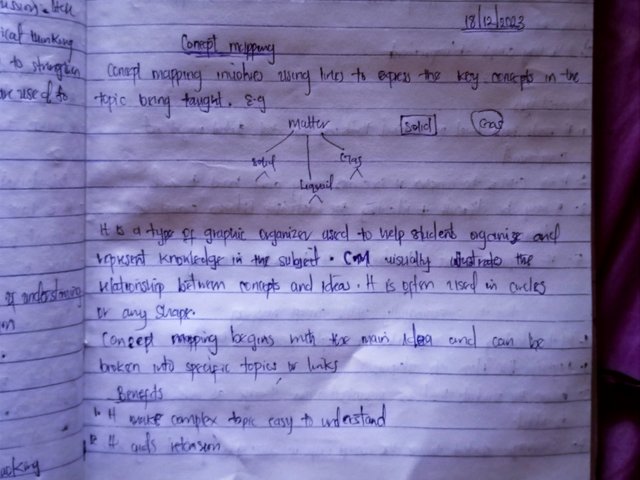 18/12/2023
Concept mapping
Concept mapping involves using lines to express the key concepts in the
topic being taught. E.g
matter
solid
Gas
Solid
Gas
Liquid
It is a type of graphic organizer used to help students organize and
represent knowledge in the subject. CM visually illustrate the
relationship between concepts and ideas. It is often used in circles
or any shape.
Concept mapping begins with the main idea and can be
broken into specific topics or links
Benefits
It make complex topic easy to understand
It aids retension
ical thinking
to strengthen
use of to
of understanding